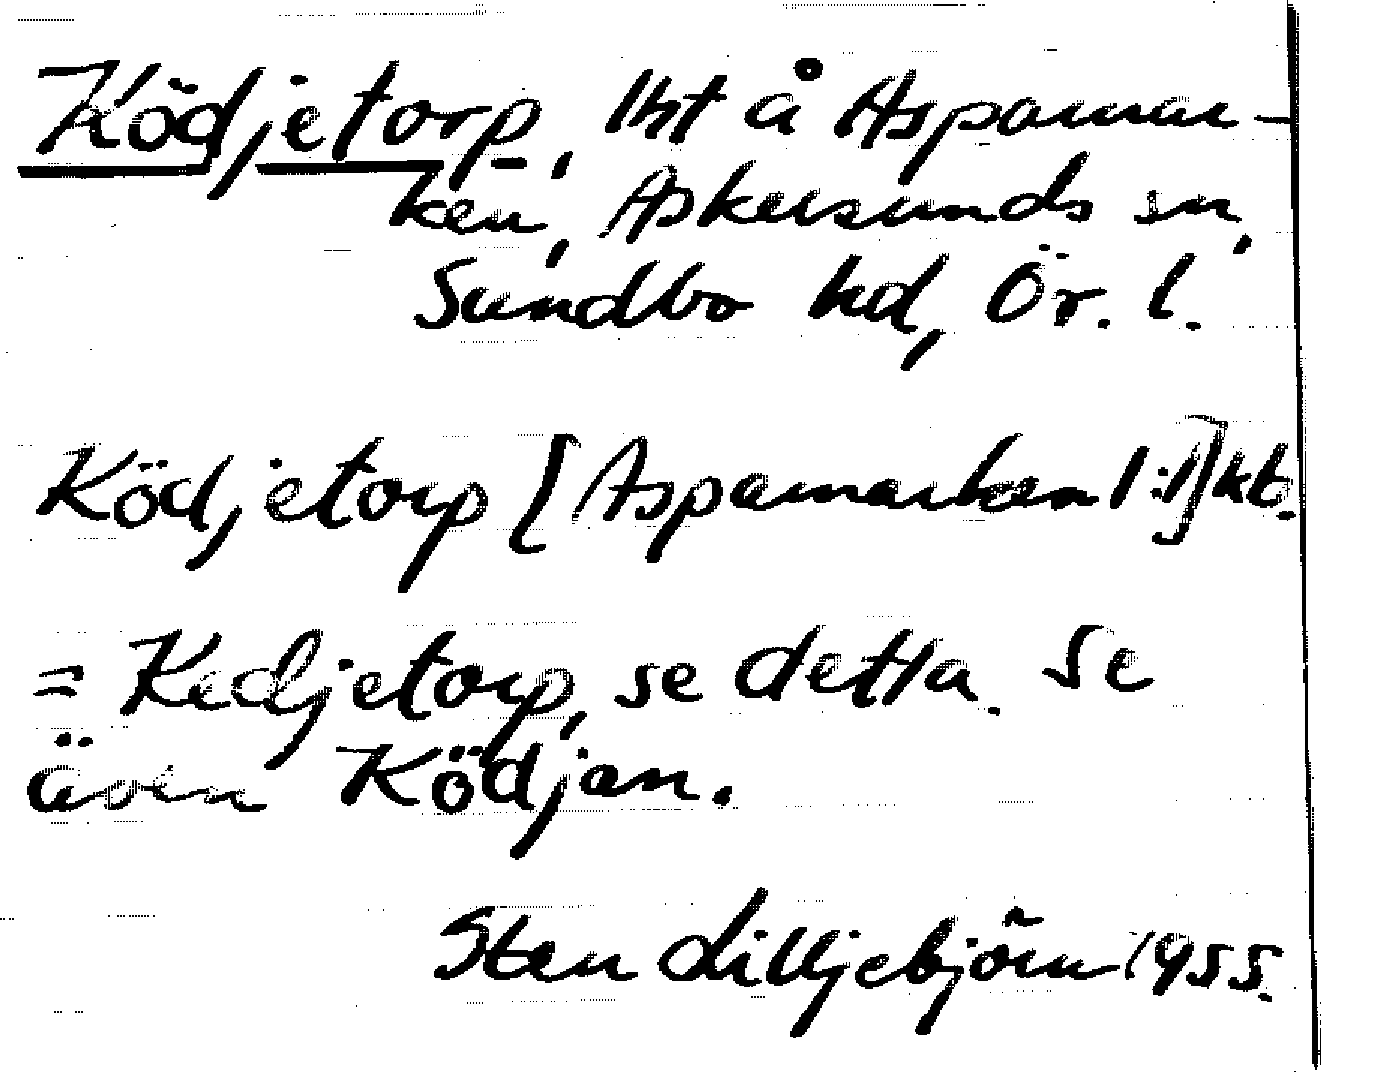 Ködjetorp, lht å Aspamar-
ken, Askersunds sn,
Sundbo hd, Ör. l.
Ködjetorp [Aspamarken 1:1] kt.
= Kedjetorp, se detta. Se
även Ködjan.
Sten Lilljebjörn 1955.